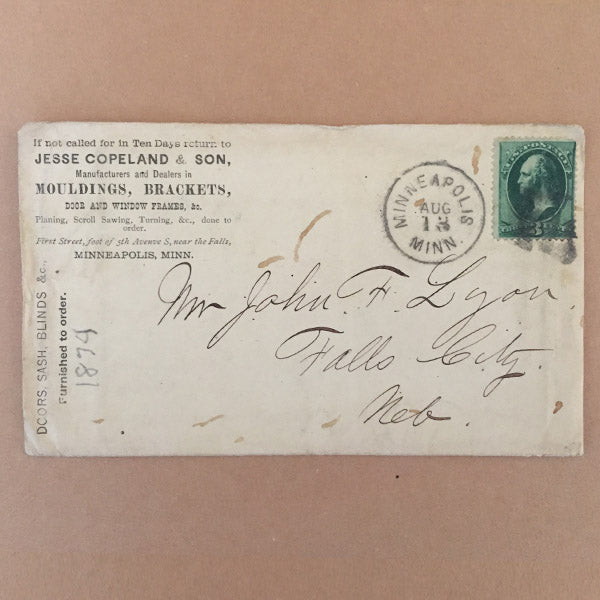 If not called for in Ten Days return to
JESSE COPELAND & SON,
Manufacturers and Dealers in
MOULDINGS, BRACKETS,
DOOR AND WINDOW FRAMES, &c.
Planing, Scroll Sawing, Turning, &c., done to
order.
First Street, foot of 5th Avenue S, near the Falls,
MINNEAPOLIS, MINN.
DOORS, SASH, BLINDS &c.,
Furnished to order.
1874
MINNEAPOLIS
AUG
13
MINN.
U.S. POSTAGE
3
Mr John F. Lyon.
Falls City.
Neb.